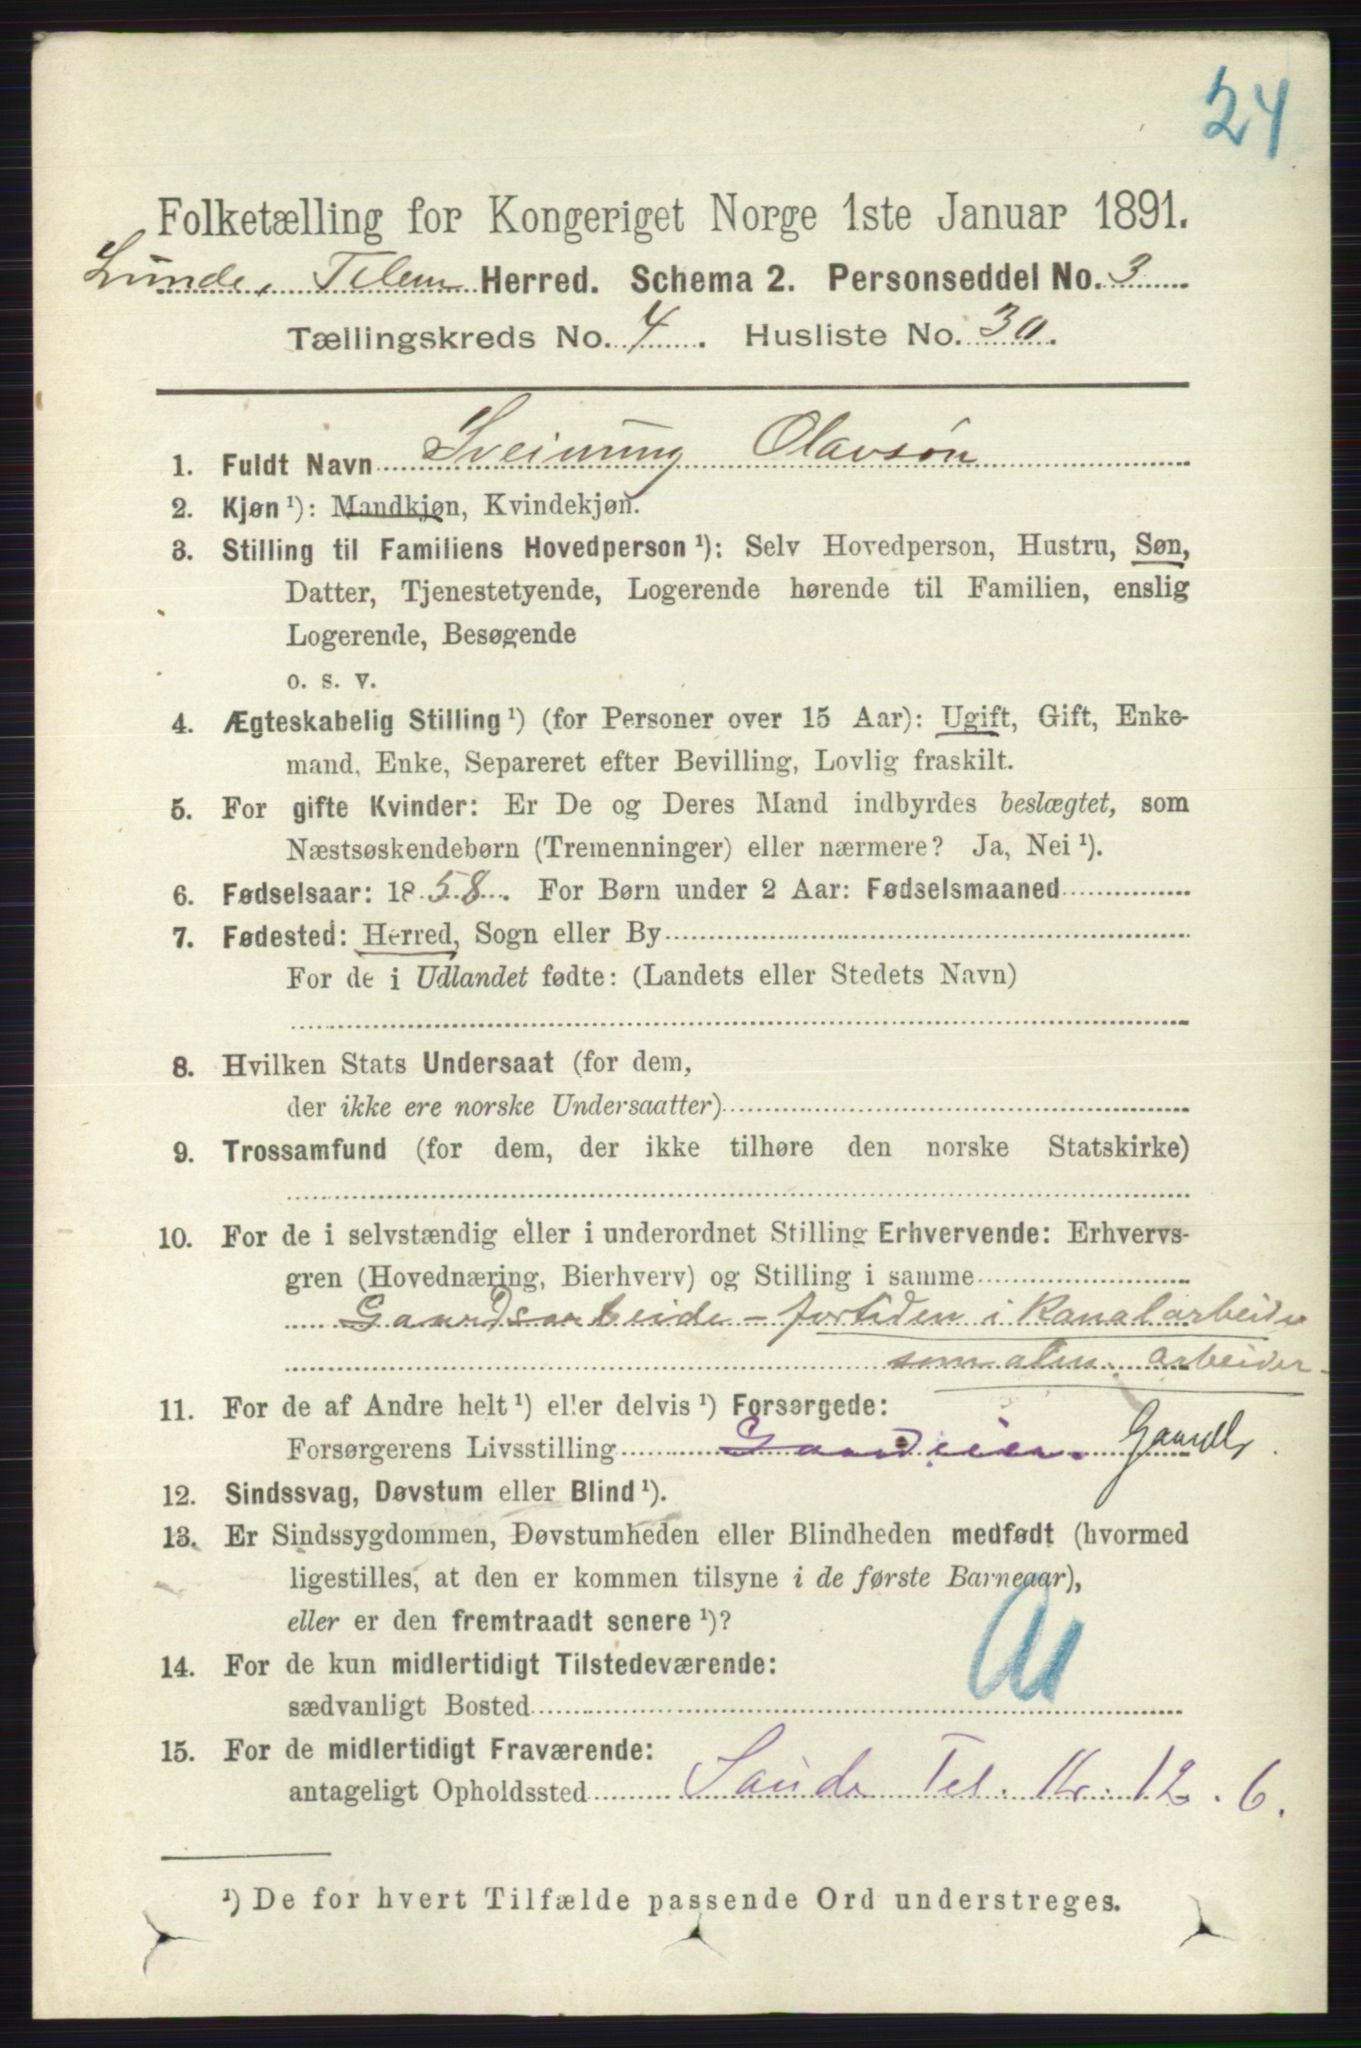 24
Folketælling for Kongeriget Norge 1ste Januar 1891.
Lunde, Telem Herred. Schema 2. Personseddel No. 3
Tællingskreds No. 4. Husliste No. 30.
1. Fuldt Navn Sveinung Olavsøn
2. Kjøn ¹): Mandkjøn, Kvindekjøn.
3. Stilling til Familiens Hovedperson ¹): Selv Hovedperson, Hustru, Søn,
Datter, Tjenestetyende, Logerende hørende til Familien, enslig
Logerende, Besøgende
o. s. v.
4. Ægteskabelig Stilling ¹) (for Personer over 15 Aar): Ugift, Gift, Enke-
mand, Enke, Separeret efter Bevilling, Lovlig fraskilt.
5. For gifte Kvinder: Er De og Deres Mand indbyrdes beslægtet, som
Næstsøskendebørn (Tremenninger) eller nærmere? Ja, Nei ¹).
6. Fødselsaar: 1858. For Børn under 2 Aar: Fødselsmaaned
7. Fødested: Herred, Sogn eller By
For de i Udlandet fødte: (Landets eller Stedets Navn)
8. Hvilken Stats Undersaat (for dem,
der ikke ere norske Undersaatter)
9. Trossamfund (for dem, der ikke tilhøre den norske Statskirke)
10. For de i selvstændig eller i underordnet Stilling Erhvervende: Erhvervs-
gren (Hovednæring, Bierhverv) og Stilling i samme
Gaardsarbeide - fortiden i Kanalarbeide
som alm. arbeider
11. For de af Andre helt ¹) eller delvis ¹) Forsørgede:
Forsørgerens Livsstilling Gaardeier. Gaardbr.
12. Sindssvag, Døvstum eller Blind ¹).
13. Er Sindssygdommen, Døvstumheden eller Blindheden medfødt (hvormed
ligestilles, at den er kommen tilsyne i de første Barneaar),
eller er den fremtraadt senere ¹)?
14. For de kun midlertidigt Tilstedeværende:
sædvanligt Bosted
15. For de midlertidigt Fraværende:
antageligt Opholdssted Saude Tel. Kr. 12. 6.
¹) De for hvert Tilfælde passende Ord understreges.